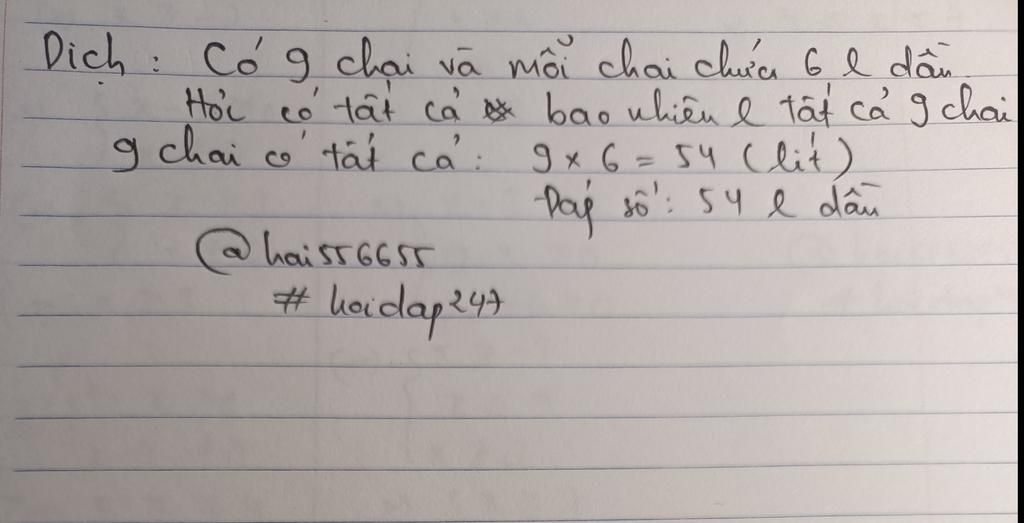 Dịch : Có 9 chai và mỗi chai chứa 6 l dầu
Hỏi có tất cả bao nhiêu l tất cả 9 chai
9 chai có tất cả : 9 x 6 = 54 (lít)
Đáp số : 54 l dầu
@hai556655
# hoidap247